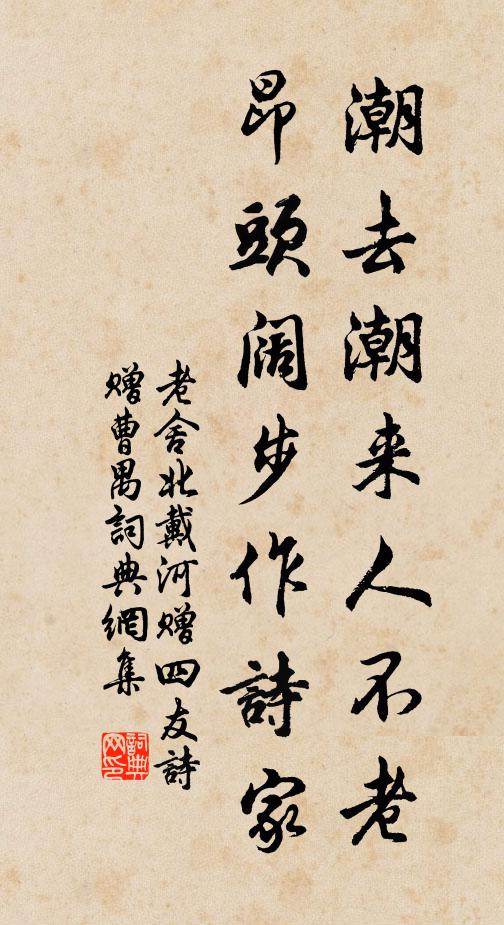 潮去潮来人不老
昂頭阔步作詩家
老舍北戴河赠四友詩
赠曹禺詞典網集
詞典网印